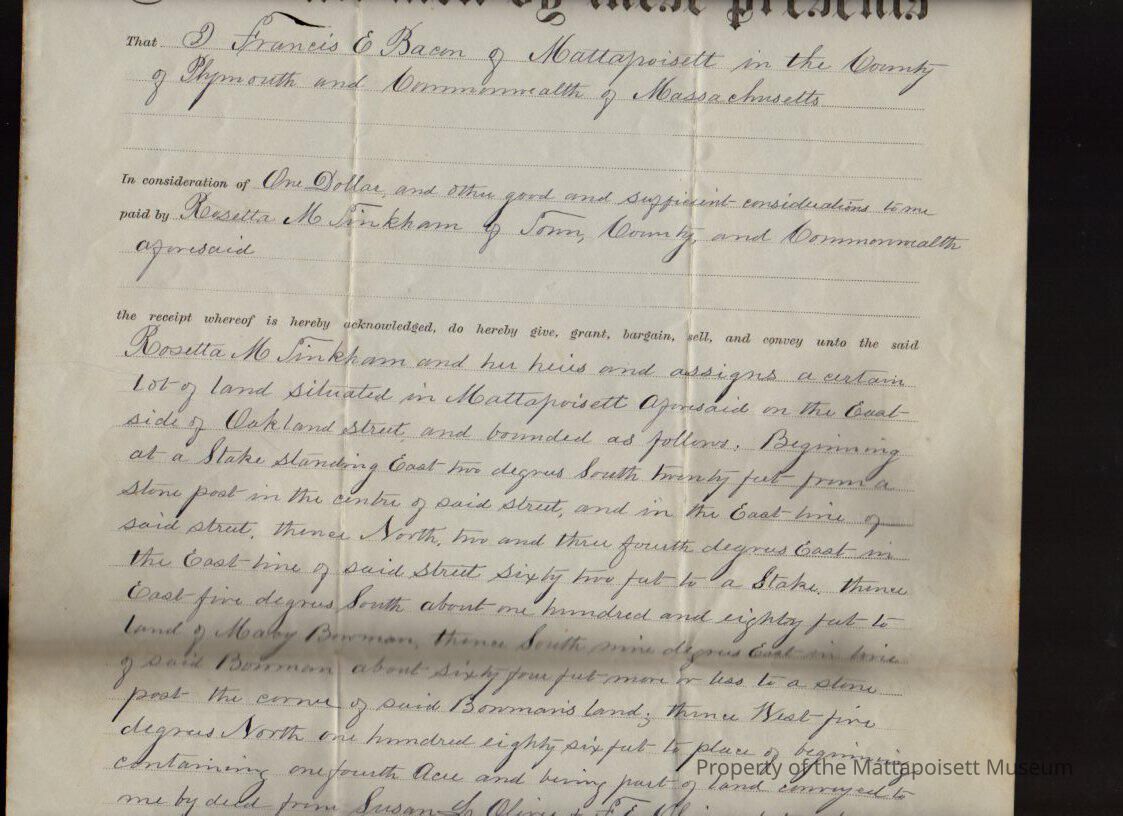 by these presents
That I Francis E Bacon of Mattapoisett in the County
of Plymouth and Commonwealth of Massachusetts
In consideration of One Dollar, and other good and sufficient considerations to me
paid by Rosetta M Tinkham of Town, County, and Commonwealth
aforesaid
the receipt whereof is hereby acknowledged, do hereby give, grant, bargain, sell, and convey unto the said
Rosetta M Tinkham and her heirs and assigns a certain
Lot of land situated in Mattapoisett aforesaid on the East
side of Oakland street, and bounded as follows. Beginning
at a Stake standing East two degrees South twenty feet from a
stone post in the centre of said street, and in the East line of
said street, thence North, two and three fourth degrees East in
the East line of said street sixty two feet to a Stake. thence
East five degrees South about one hundred and eighty feet to
land of Mary Bowman, thence South nine degrees East in line
of said Bowman about sixty four feet more or less to a stone
post the corner of said Bowman's land; thence West five
degrees North one hundred eighty six feet to place of beginning
containing one fourth Acre and being part of land conveyed to
me by deed from Susan L
Property of the Mattapoisett Museum